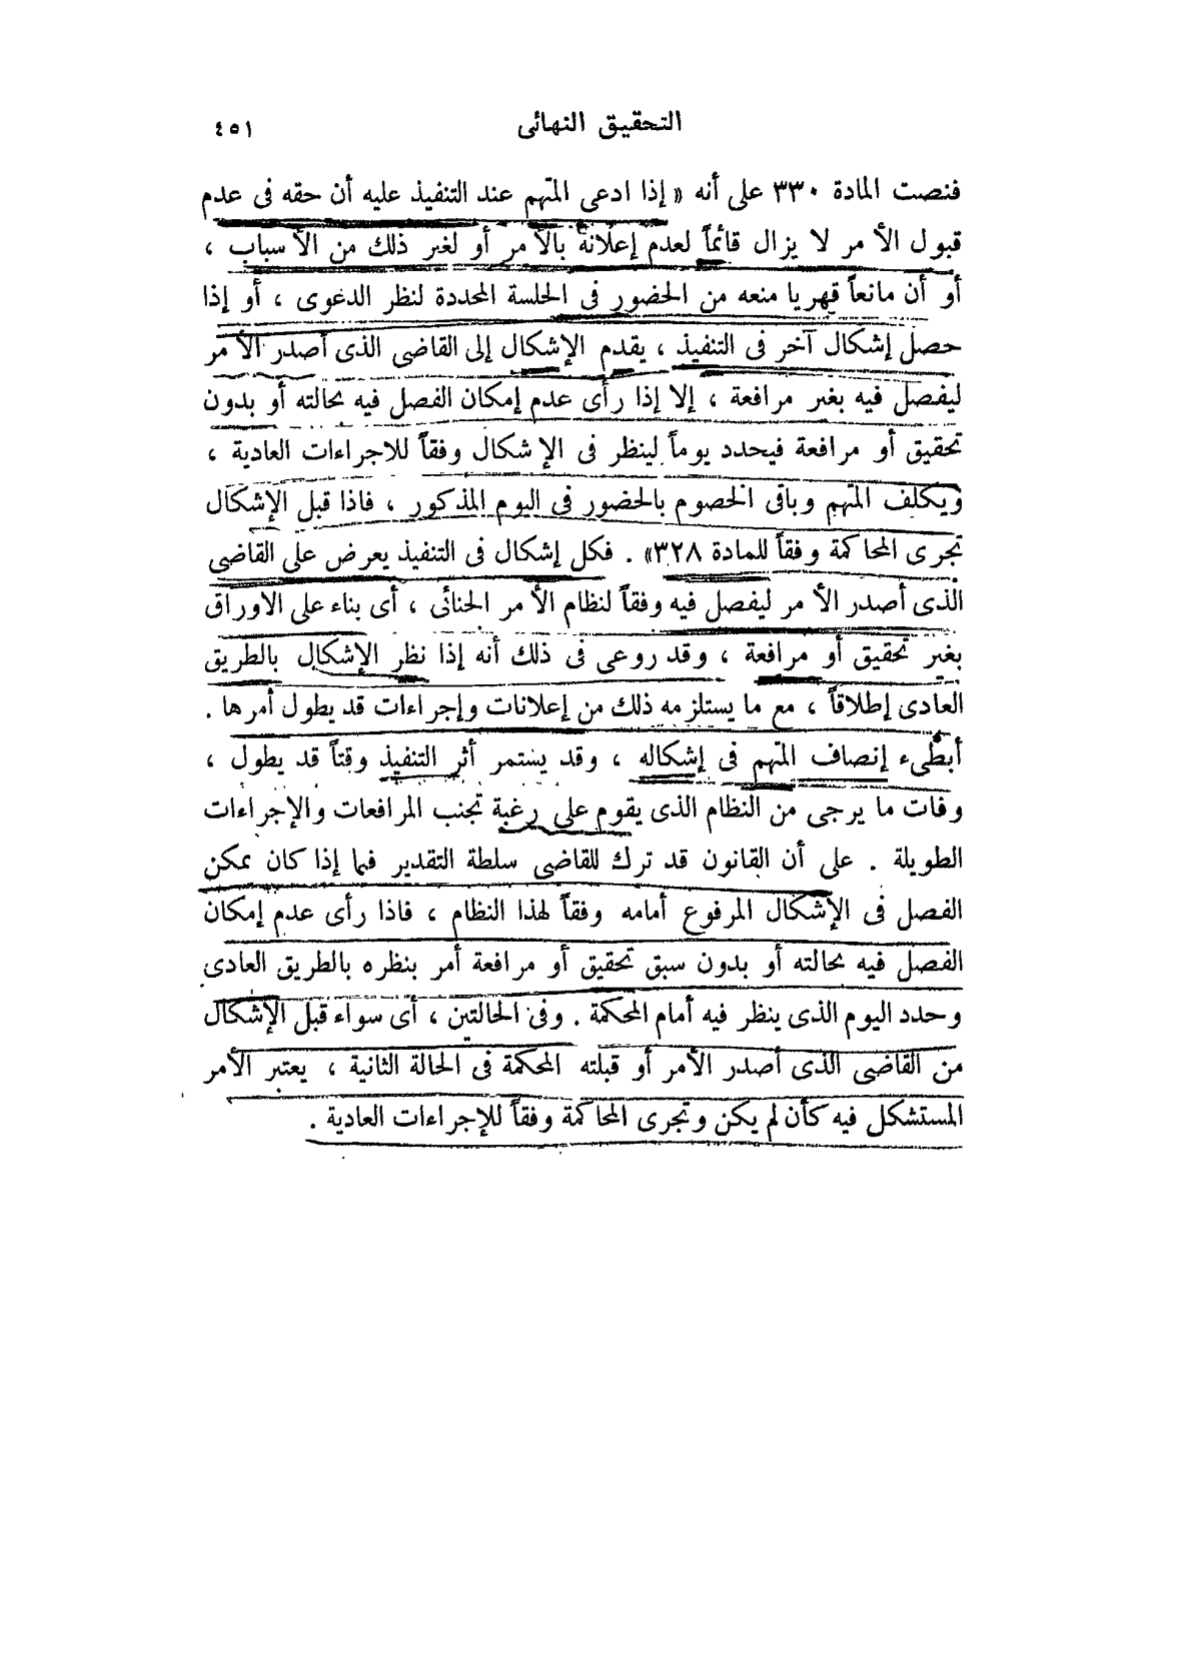 التحقيق النهائى
٤٥١
فنصت المادة ٣٣٠ على أنه « إذا ادعى المتهم عند التنفيذ عليه أن حقه فى عدم
قبول الأمر لا يزال قائماً لعدم إعلانه بالأمر أو لغير ذلك من الأسباب ،
أو أن مانعاً قهريا منعه من الحضور فى الجلسة المحددة لنظر الدعوى ، أو إذا
حصل إشكال آخر فى التنفيذ ، يقدم الإشكال إلى القاضى الذى أصدر الأمر
ليفصل فيه بغير مرافعة ، إلا إذا رأى عدم إمكان الفصل فيه بحالته أو بدون
تحقيق أو مرافعة فيحدد يوماً لينظر فى الإشكال وفقاً للاجراءات العادية ،
ويكلف المتهم وباقى الخصوم بالحضور فى اليوم المذكور ، فاذا قبل الإشكال
تجرى المحاكمة وفقاً للمادة ٣٢٨» . فكل إشكال فى التنفيذ يعرض على القاضى
الذى أصدر الأمر ليفصل فيه وفقاً لنظام الأمر الجنائى ، أى بناء على الاوراق
بغير تحقيق أو مرافعة ، وقد روعى فى ذلك أنه إذا نظر الإشكال بالطريق
العادى إطلاقاً ، مع ما يستلزمه ذلك من إعلانات وإجراءات قد يطول أمرها .
أبطىء إنصاف المتهم فى إشكاله ، وقد يستمر أثر التنفيذ وقتاً قد يطول ،
وفات ما يرجى من النظام الذى يقوم على رغبة تجنب المرافعات والإجراءات
الطويلة . على أن القانون قد ترك للقاضى سلطة التقدير فيما إذا كان يمكن
الفصل فى الإشكال المرفوع أمامه وفقاً لهذا النظام ، فاذا رأى عدم إمكان
الفصل فيه بحالته أو بدون سبق تحقيق أو مرافعة أمر بنظره بالطريق العادى
وحدد اليوم الذى ينظر فيه أمام المحكمة . وفى الحالتين ، أى سواء قبل الإشكال
من القاضى الذى أصدر الأمر أو قبلته المحكمة فى الحالة الثانية ، يعتبر الأمر
المستشكل فيه كأن لم يكن وتجرى المحاكمة وفقاً للإجراءات العادية .